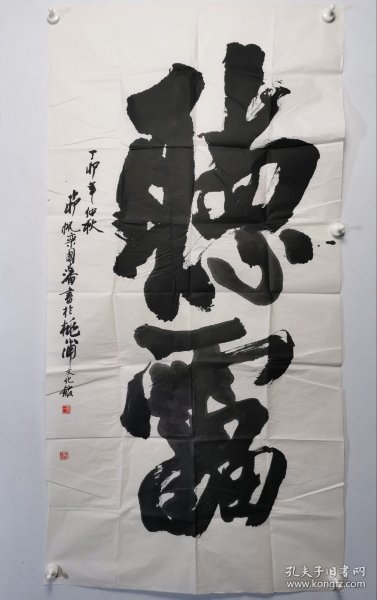 聽雷
丁卯年仲秋
国藩書於桃浦文化館
孔夫子旧书网
www.kongfz.com